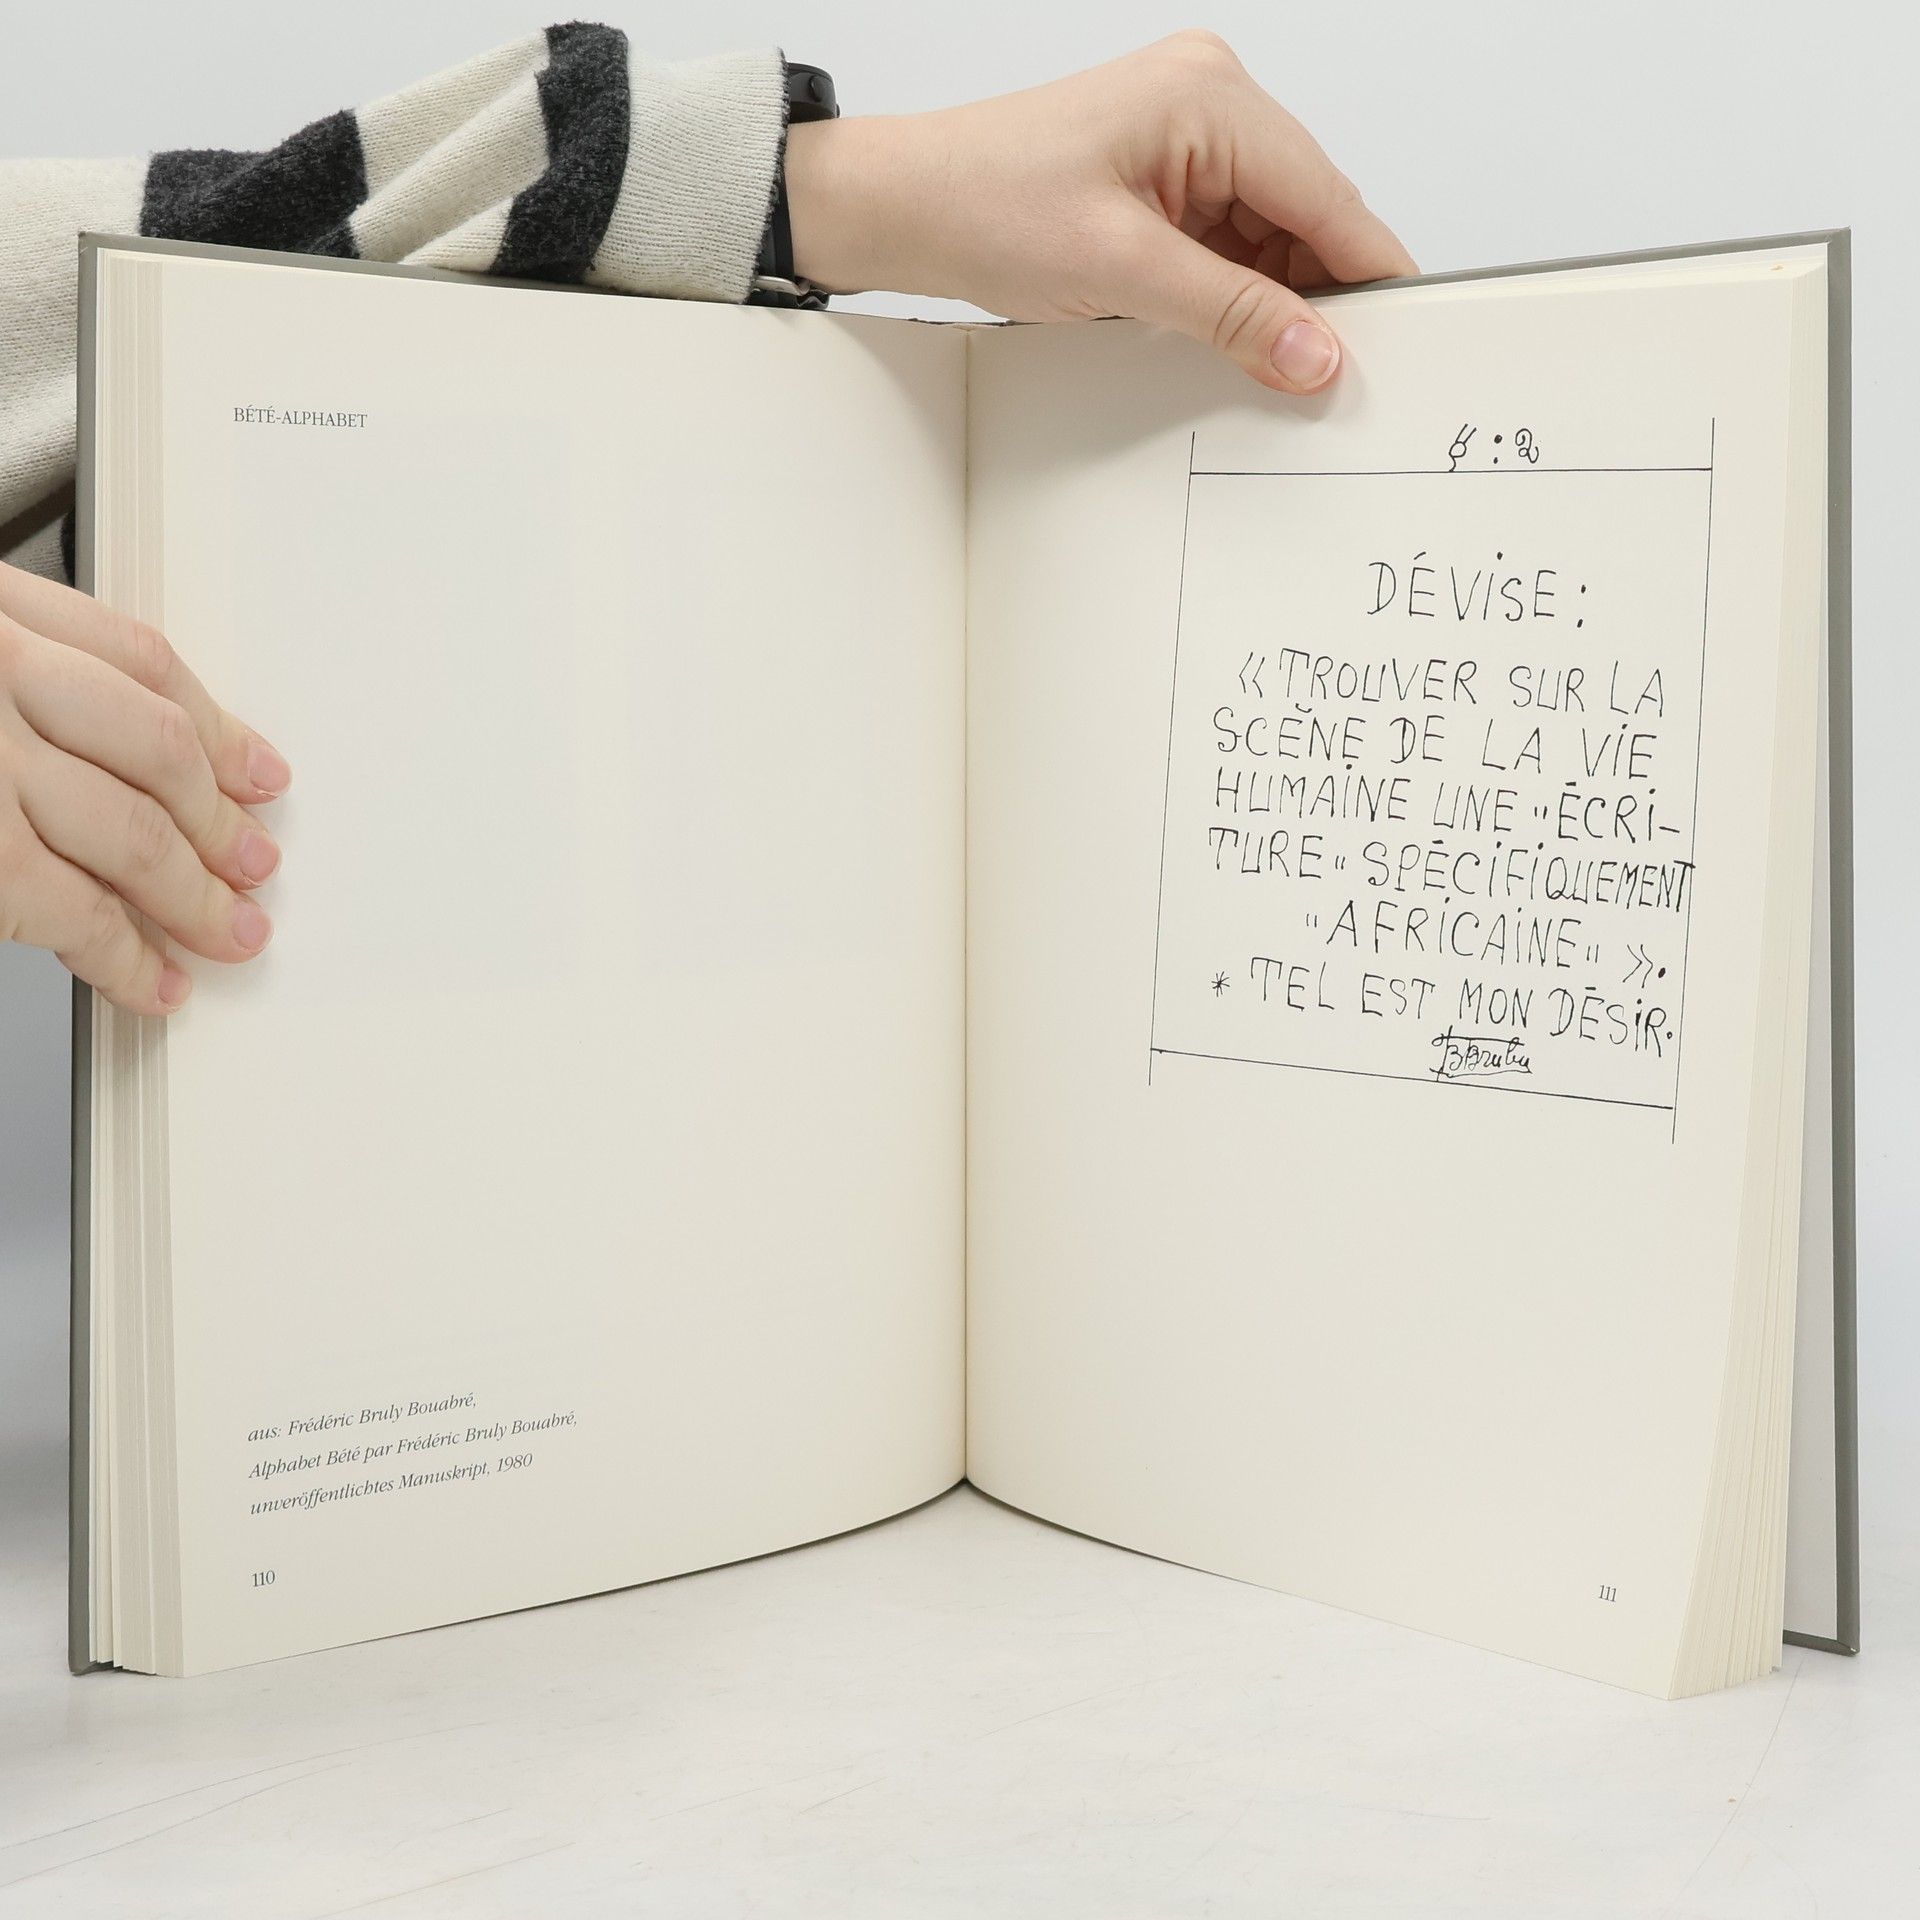 BÉTÉ-ALPHABET
aus: Frédéric Bruly Bouabré,
Alphabet Bété par Frédéric Bruly Bouabré,
unveröffentlichtes Manuskript, 1980
110
: 2
DÉViSE :
« TROUVER SUR LA
SCĔNE DE LA ViE
HUMAiNE UNE "ÉCRi-
TURE" SPÉCiFiQUEMENT
"AFRiCAiNE" ».
* TEL EST MON DÉSiR.
111